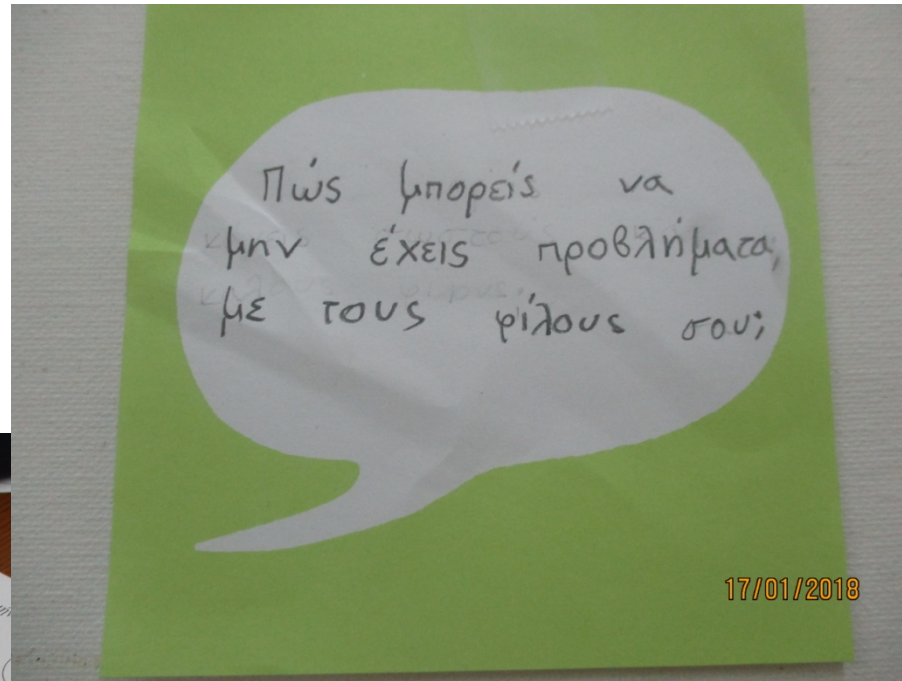 Πώς μπορείς να
μην έχεις προβλήματα,
με τους φίλους σου;
17/01/2018